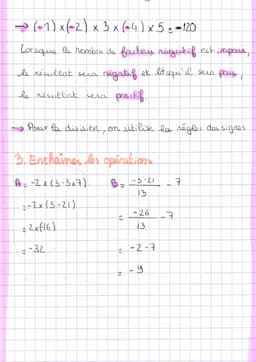 → (-1) x (-2) x 3 x (-4) x 5 = -120
Lorsque le nombre de facteurs négatif est impair,
le résultat sera négatif et lorsqu'il sera pair,
le résultat sera positif.
→ Pour la division, on utilise la règle des signes
3. Enchaîner les opérations
A = -2 x (5-3x7)
= -2x (5-21)
= 2x(16)
= -32
B = -5-21 / 13 - 7
= -26 / 13 - 7
= -2-7
= -9